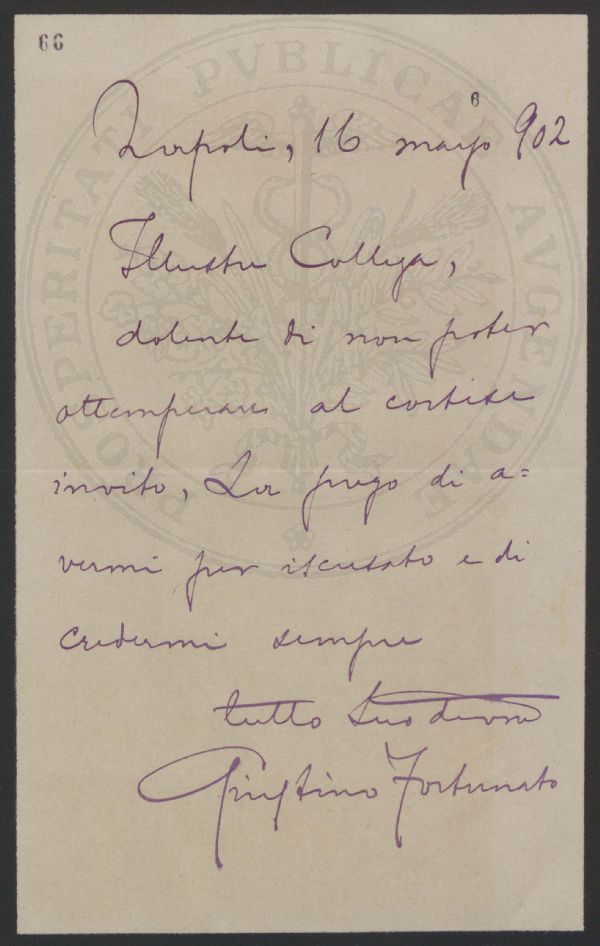 66
6
Napoli, 16 marzo 902
Illustre Collega,
dolente di non poter
ottemperare al cortese
invito, La prego di a=
vermi per iscusato e di
credermi sempre
tutto Suo devmo
Giustino Fortunato
PRO PERITATI PVBLICAE AVGENDAE